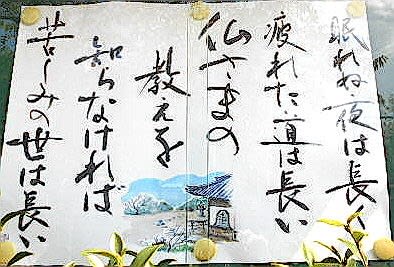 眠れね夜は長い
疲れた道は長い
仏さまの
教えを
知らなければ
苦しみの世は長い